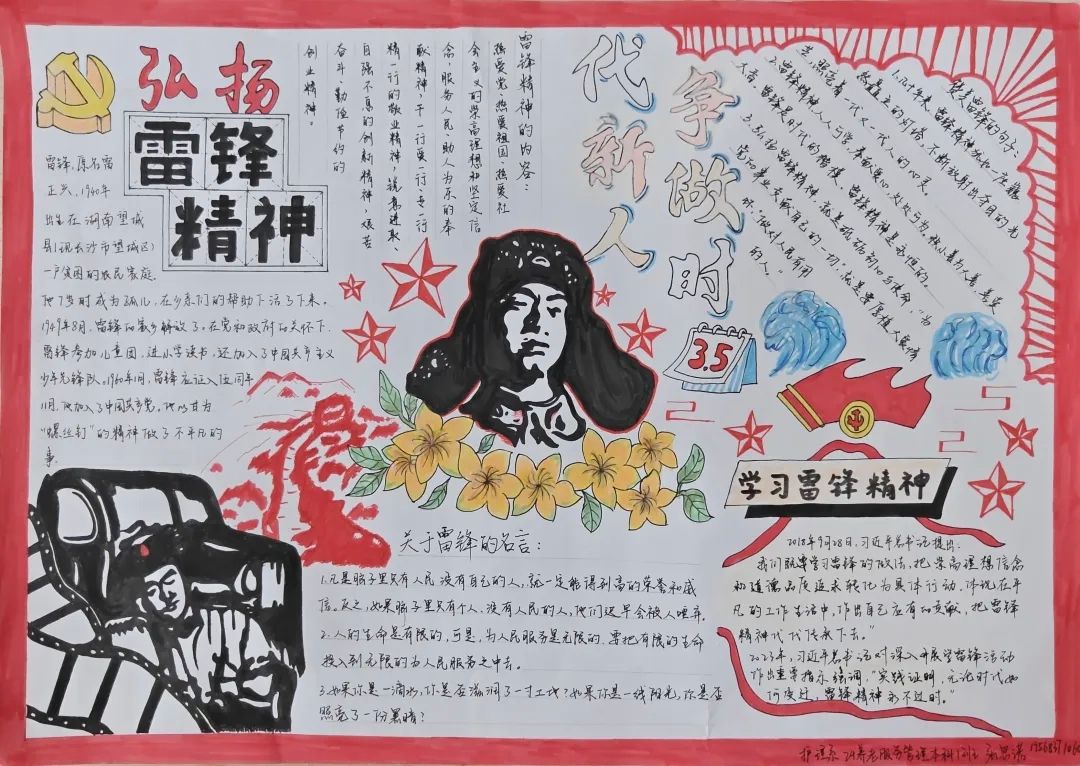 弘扬
雷锋
精神
雷锋,原名雷
正兴,1940年
出生在湖南望城
县(现长沙市望城区)
一户贫困的农民家庭.
他7岁时成为孤儿,在乡亲们的帮助下活了下来。
1949年8月,雷锋的家乡解放了。在党和政府的关怀下.
雷锋参加儿童团,进小学读书,还加入了中国共产主义
少年先锋队。1960年1月,雷锋应征入伍同年
11月,他加入了中国共产党。他以甘为
"螺丝钉"的精神做了不平凡的
事.
雷锋精神的内容:
热爱党,热爱祖国,热爱社
会主义的崇高理想和坚定信
念,服务人民,助人为乐的奉
献精神,干一行爱一行,专一行
精一行的敬业精神,锐意进取、
自强不息的创新精神,艰苦
奋斗勤俭节约的
创业精神。
争做时
代新人
赞美雷锋的句子:
3.5
学习雷锋精神
2018年9月28日,习近平总书记提出.
我们既要学习雷锋的做法,把崇高理想信念
和道德品质追求转化为具体行动,体现在平
凡的工作生活中,作出自己应有的贡献,把雷锋
精神代代传承下去。"
2023年,习近平总书记对深入开展学雷锋活动
作出重要指示强调,"实践证明,无论时代如
何变迁,雷锋精神永不过时。"
关于雷锋的名言:
1.凡是脑子里只有人民,没有自己的人,就一定能得到高的荣誉和威
信。反之,如果脑子里只有个人、没有人民的人,他们迟早会被人唾弃.
2.人的生命是有限的,可是,为人民服务是无限的.要把有限的生命
投入到无限的为人民服务之中去。
3.如果你是一滴水,你是否滋润了一寸土地?如果你是一线阳光,你是否
照亮了一份黑暗?
护理系 24养老服务管理本科